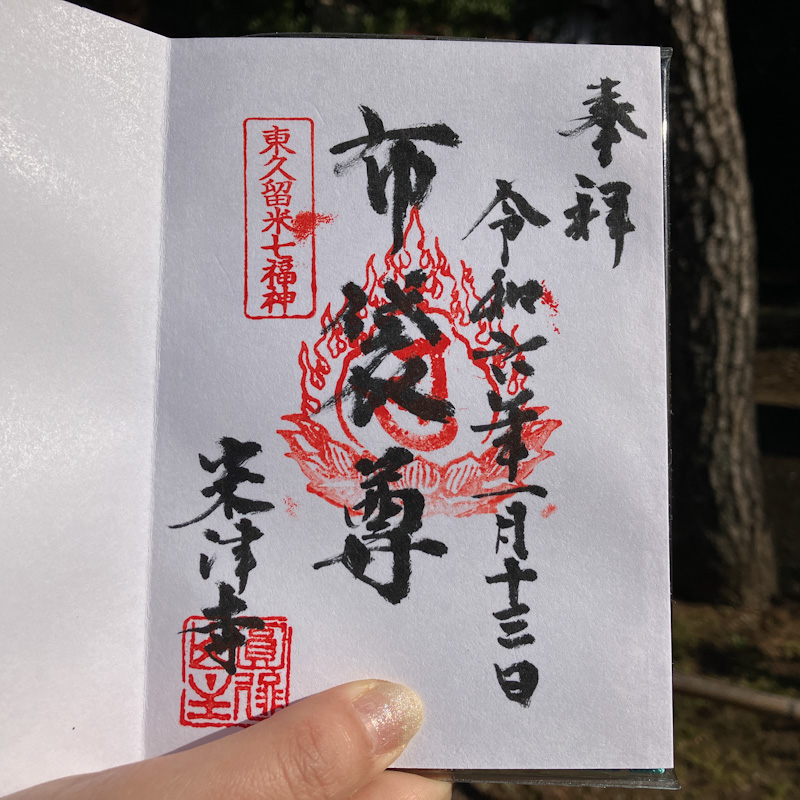 奉拝
令和六年一月十三日
布袋尊
東久留米七福神
米津寺